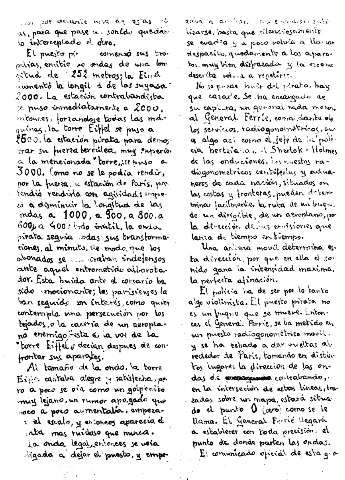 as, para que pase su sonido quedan-
do interceptado el otro.
El puesto pi comenzó sus tro-
pelías, emitie ondas de una lon-
gitud de 252 metros; la Eiffel
aumentó la longit d de las suyas a
2000. La estación contrabandista
se puso inmediatamente a 2000,
entonces, forzándose todas las má-
quinas, la torre Eiffel se puso a
la estación pirata, para demos-
trar su fuerza terrible, muy superior
a la mencionada torre, se puso a
3000. Como no se le podía rendir,
por la fuerza, la estación de París, pre-
tendió rendirla con agilidades empe-
zó a disminuir la longitud de las
ondas a 1000, a 900, a 800, a
600, a 400: todo inútil, la onda
pirata seguía todas sus transforma-
ciones, al minuto, de modo, que los
abonados se indefensos
ante aquel entrometido alborota-
dor. Esta huida ante el corsario ha
sido emocionante; los parisienses la
han seguido con interés, como quien
contempla una persecución por los
tejados, o la cacería de un aeropla-
no enemigo. ¡Esta es la voz de la
torre Eiffel! decían después de con-
frontar sus aparatos.
Al tamaño de la onda, la torre
Eiffel cantaba alegre y satisfecha, pe-
ro a poco se oía como un golpecito
muy lejano, un rumor apagado que
poco a poco aumentaba, empeza-
el asalto, y entonces aparecía el
más ruidoso que nunca.
La onda legal, entonces se veía
obligada a dejar el puesto, y empe-
lizarse, hasta que silenciosamente
se evadía y a poco volvía a llamar
despacito, quedamente a los apara-
tos, muy bien disfrazada y la escena
descrita volvía a repetirse.
No se puede huir del pirata, hay
que cazarlo. Se ha encargado de
su captura, un general nada menos,
al General Ferrié, comandante de
los servicios, radiogonométricos,
a algo así como el jefe de la poli-
cía hertziana, el Sherlok-Holmes
de las ondulaciones. Los nuestros ra-
diogonométricos centinelas y adua-
neros de cada nación, situados en
las costas y fronteras, pueden deter-
minar fácilmente la ruta de un buque,
de un dirigible, de un aeroplano, por
la dirección de las emisiones que
lanza de tiempo en tiempo.
Una antena movil determina es-
ta dirección, por que en ella el so-
nido gana la intensidad máxima,
la perfecta afinación.
El policía ha de ser por lo tanto
algo violinista. El puesto pirata no
es un buque que se mueve. Enton-
ces el General Ferrié, se ha metido en
un puesto radiogonométrico movil
y se ha echado a dar vueltas al
rededor de París, tomando en distin-
tos lugares la dirección de las on-
das de contrabando,
en la intersección de estas líneas, tra-
zadas sobre un mapa, estará situa-
do el punto O como se le
llama. El General Ferrié llegará
a establecer con toda precisión el
punto de donde parten las ondas.
El comunicado oficial de esta